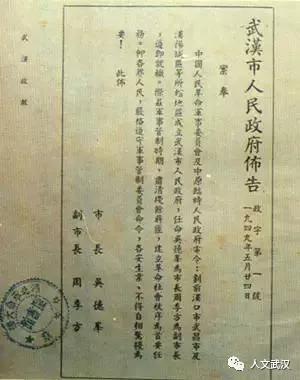 武漢市人民政府佈告
政字第一號
一九四九年五月廿四日
案奉
中國人民革命軍事委員會及中原臨時人民政府命令：劃前漢口市武昌市及
漢陽城區等所轄地區成立武漢市人民政府，任命吳德峯為市長周季方為副市長
，遵即就職。際茲軍事管制時期，肅清殘餘蔣匪，建立革命社會秩序為首要任
務。仰各界人民，嚴格遵守軍事管制委員會命令，各安生業，不得自相驚擾為
要！
此佈
市長 吳德峯
副市長 周季方
武漢政報
人文武漢